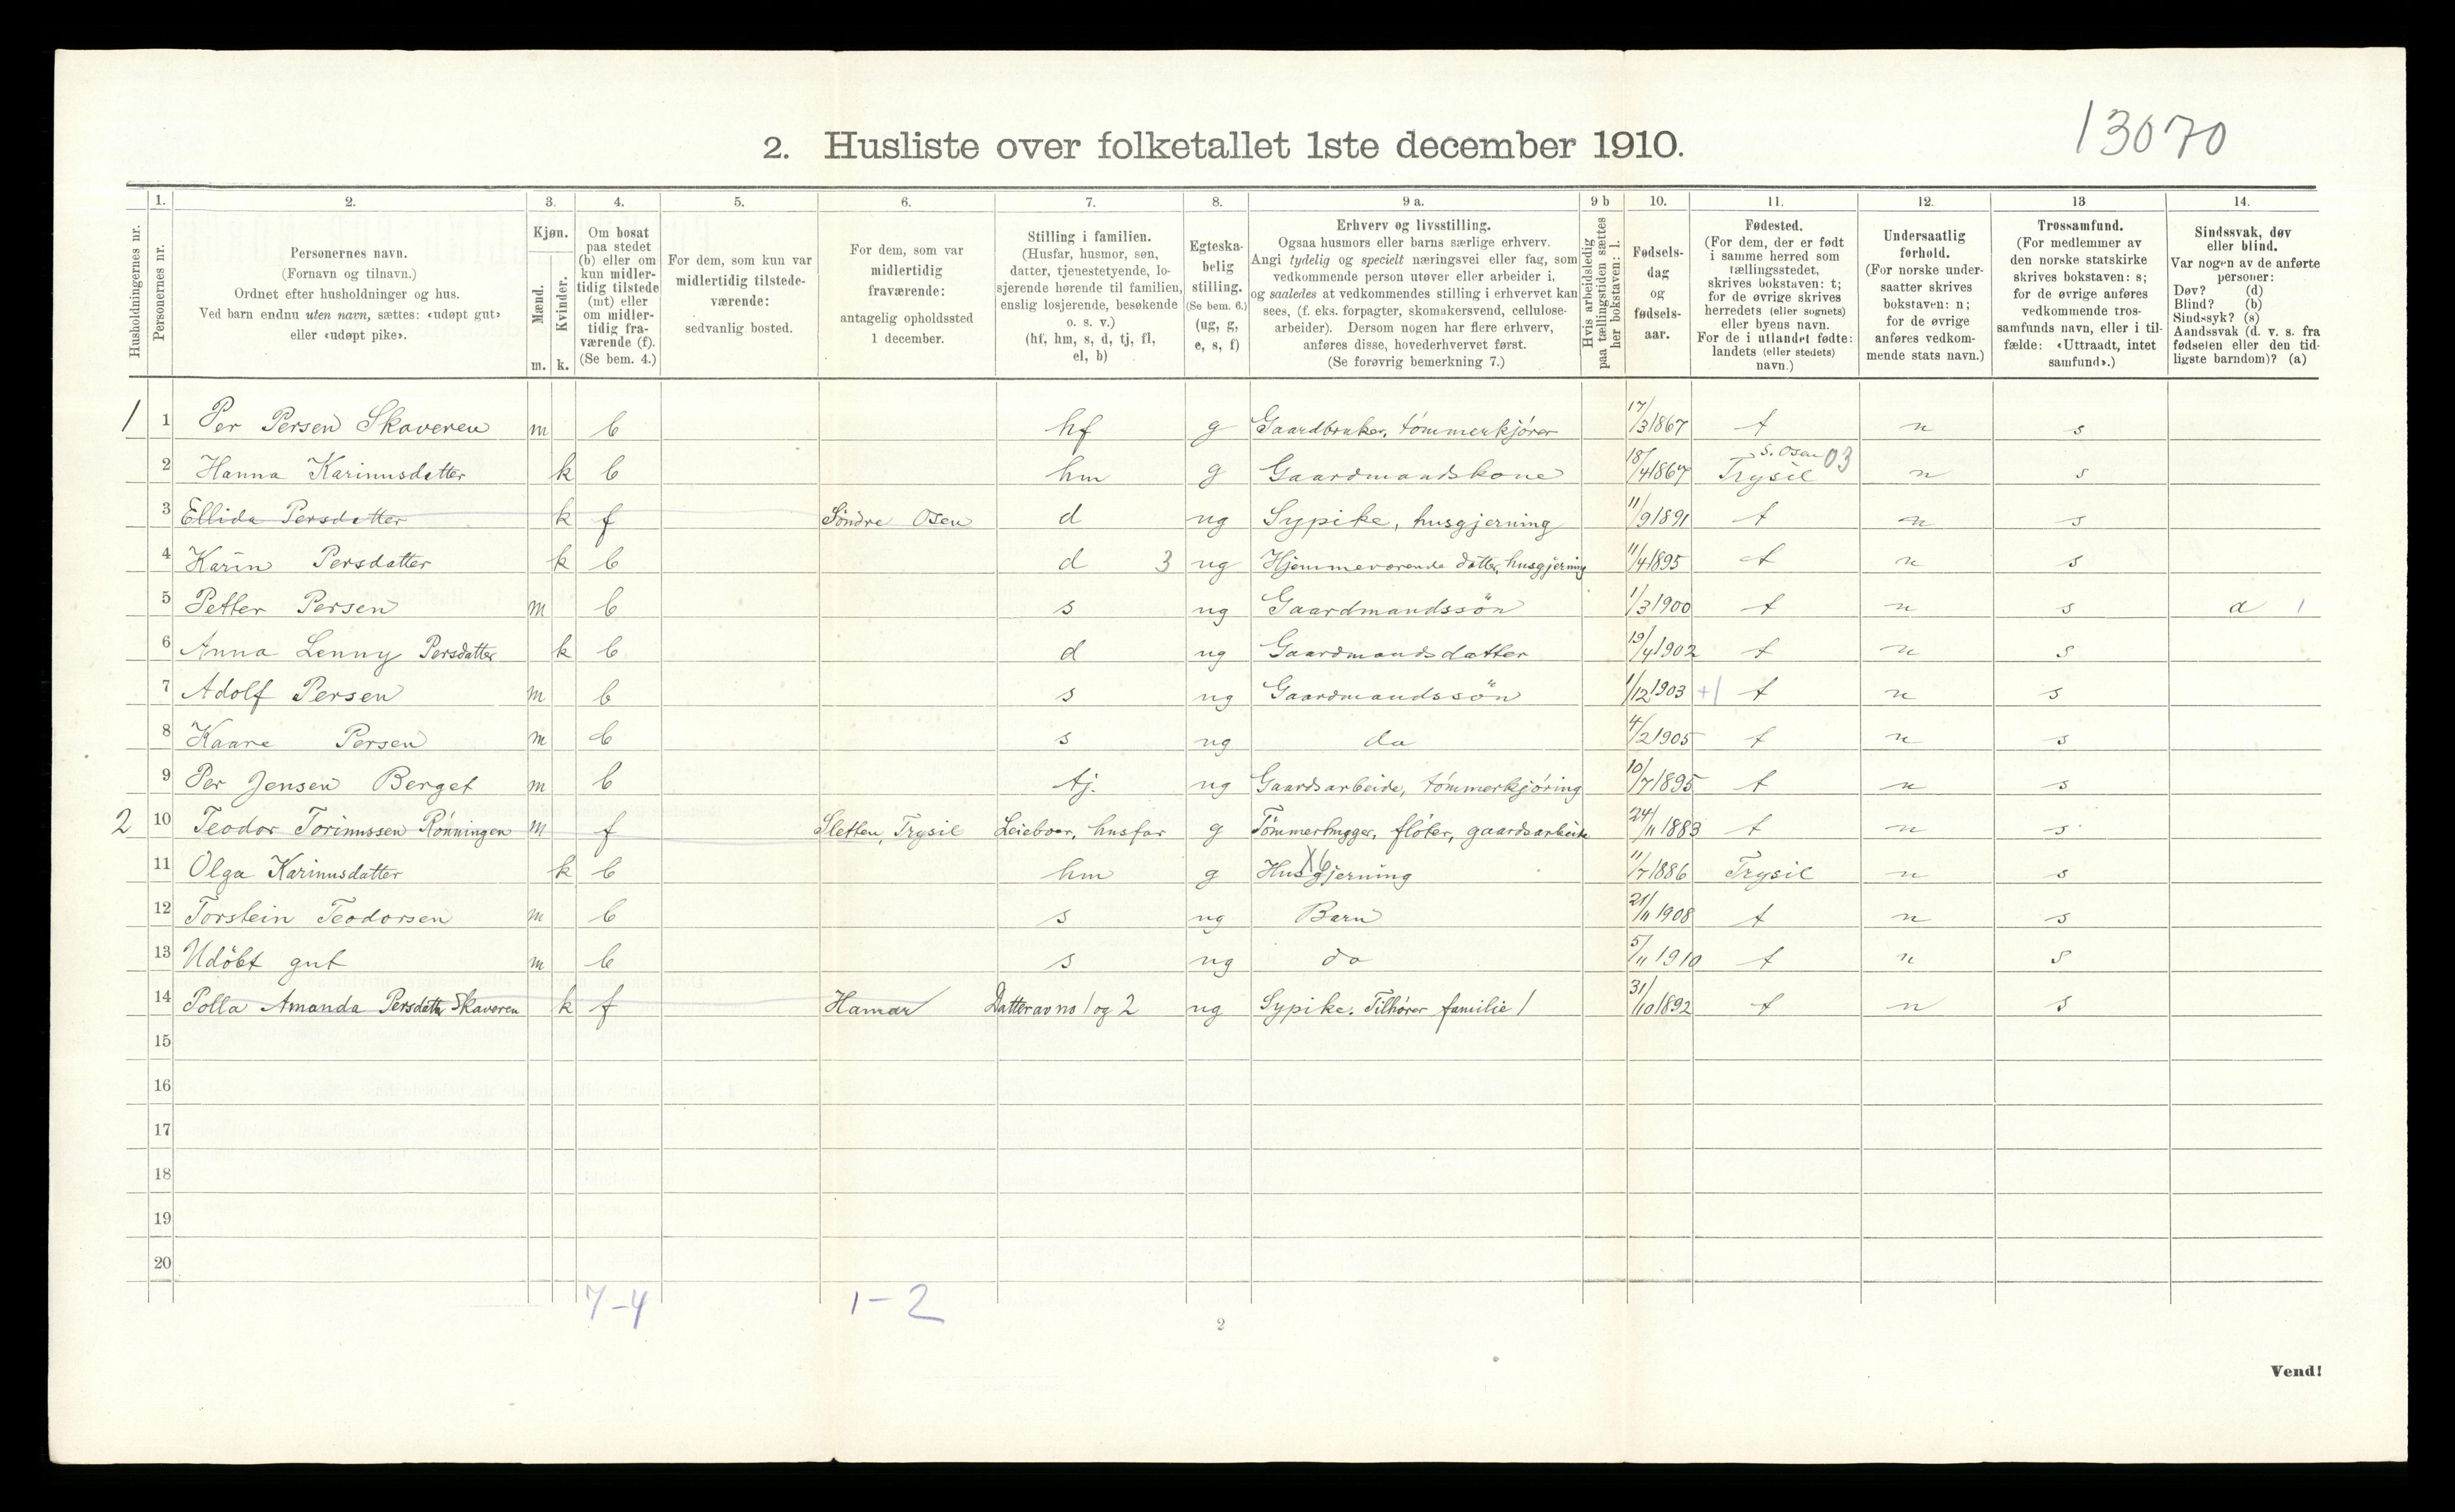 13070
2. Husliste over folketallet 1ste december 1910.
1. 2. 3. 4. 5. 6. 7. 8. 9 a. 9 b 10. 11. 12. 13 14.
Husholdningernes nr.
Personernes nr.
Personernes navn.
(Fornavn og tilnavn.)
Ordnet efter husholdninger og hus.
Ved barn endnu uten navn, sættes: «udøpt gut»
eller «udøpt pike».
Kjøn.
Mænd.
Kvinder.
m. k.
Om bosat
paa stedet
(b) eller om
kun midler-
tidig tilstede
(mt) eller
om midler-
tidig fra-
værende (f).
(Se bem. 4.)
For dem, som kun var
midlertidig tilstede-
værende:
sedvanlig bosted.
For dem, som var
midlertidig
fraværende:
antagelig opholdssted
1 december.
Stilling i familien.
(Husfar, husmor, søn,
datter, tjenestetyende, lo-
sjerende hørende til familien,
enslig losjerende, besøkende
o. s. v.)
(hf, hm, s, d, tj, fl,
el, b)
Egteska-
belig
stilling.
(Se bem. 6.)
(ug, g,
e, s, f)
Erhverv og livsstilling.
Ogsaa husmors eller barns særlige erhverv.
Angi tydelig og specielt næringsvei eller fag, som
vedkommende person utøver eller arbeider i,
og saaledes at vedkommendes stilling i erhvervet kan
sees, (f. eks. forpagter, skomakersvend, cellulose-
arbeider). Dersom nogen har flere erhverv,
anføres disse, hovederhvervet først.
(Se forøvrig bemerkning 7.)
Hvis arbeidsledig
paa tællingstiden sættes
her bokstaven: l.
Fødsels-
dag
og
fødsels-
aar.
Fødested.
(For dem, der er født
i samme herred som
tællingsstedet,
skrives bokstaven: t;
for de øvrige skrives
herredets (eller sognets)
eller byens navn.
For de i utlandet fødte:
landets (eller stedets)
navn.)
Undersaatlig
forhold.
(For norske under-
saatter skrives
bokstaven: n;
for de øvrige
anføres vedkom-
mende stats navn.)
Trossamfund.
(For medlemmer av
den norske statskirke
skrives bokstaven: s;
for de øvrige anføres
vedkommende tros-
samfunds navn, eller i til-
fælde: «Uttraadt, intet
samfund».)
Sindssvak, døv
eller blind.
Var nogen av de anførte
personer:
Døv? (d)
Blind? (b)
Sindssyk? (s)
Aandssvak (d. v. s. fra
fødselen eller den tid-
ligste barndom)? (a)
1 1 Per Persen Skaveren m b hf g Gaardbruker, tömmerkjörer 17/3 1867 t n s
2 Hanna Karinusdatter k b hm g Gaardmandskone 18/4 1867 S. Osen 03 Trysil n s
3 Ellida Persdatter k f Söndre Osen d ug Sypike, husgjerning 11/9 1891 t n s
4 Karin Persdatter k b d 3 ug Hjemmeværende datter, husgjerning 11/4 1895 t n s
5 Petter Persen m b s ug Gaardmandssön 1/3 1900 t n s a 1
6 Anna Lenny Persdatter k b d ug Gaardmandsdatter 19/4 1902 t n s
7 Adolf Persen m b s ug Gaardmandssön 1/12 1903 +1 t n s
8 Kaare Persen m b s ug do 4/2 1905 t n s
9 Per Jensen Berget m b tj. ug Gaardsarbeide, tömmerkjöring 10/7 1895 t n s
2 10 Teodor Torinussen Rönningen m f Sletten, Trysil Leieboer, husfar g Tömmerhugger, flöter, gaardsarbeide 24/11 1883 t n s
11 Olga Karinusdatter k b hm g Husgjerning X6 11/7 1886 Trysil n s
12 Torstein Teodorsen m b s ug Barn 21/11 1908 t n s
13 Udöbt gut m b s ug do 5/11 1910 t n s
14 Polla Amanda Persdatter Skaveren k f Hamar Datter av no 1 og 2 ug Sypike. Tilhörer familie 1 31/10 1892 t n s
15
16
17
18
19
20
7-4 1-2
2
Vend!